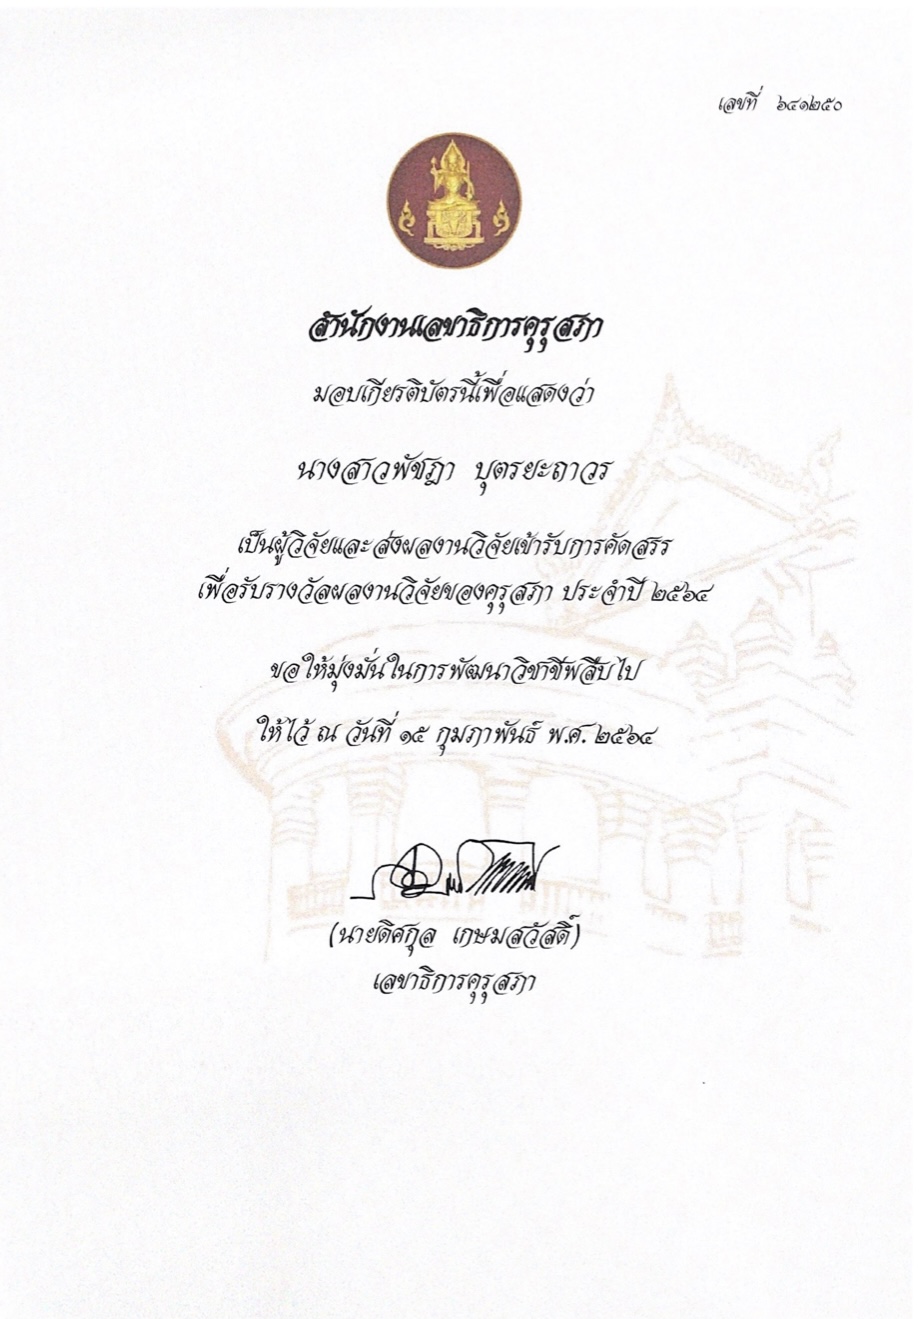 เลขที่ ๖๔๑๒๕๐
สำนักงานเลขาธิการคุรุสภา
มอบเกียรติบัตรนี้เพื่อแสดงว่า
นางสาวพัชฎา บุตรยะถาวร
เป็นผู้วิจัยและส่งผลงานวิจัยเข้ารับการคัดสรร
เพื่อรับรางวัลผลงานวิจัยของคุรุสภา ประจำปี ๒๕๖๔
ขอให้มุ่งมั่นในการพัฒนาวิชาชีพสืบไป
ให้ไว้ ณ วันที่ ๑๕ กุมภาพันธ์ พ.ศ. ๒๕๖๔
(นายดิศกุล เกษมสวัสดิ์)
เลขาธิการคุรุสภา